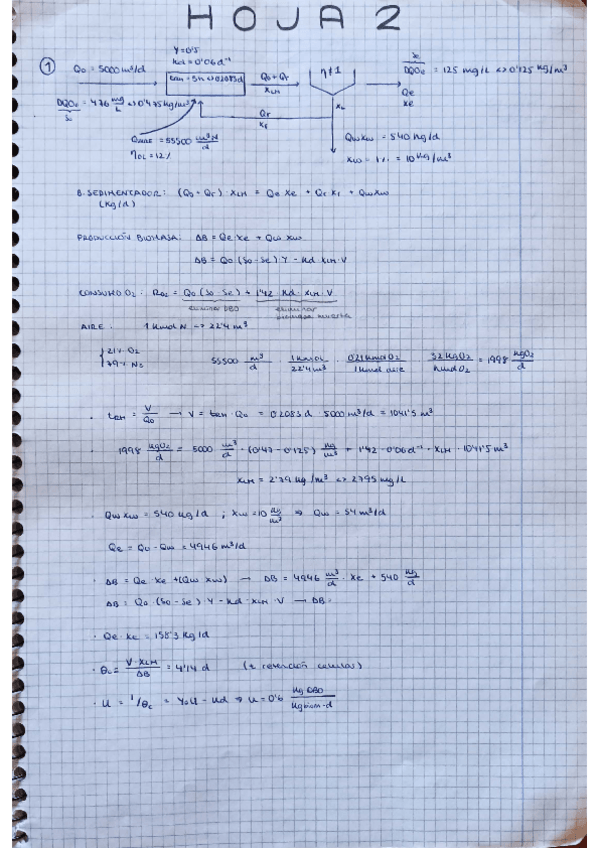 HOJA 2
① Q0 = 5000 m³/d
Y=0'5
Kd = 0'06 d⁻¹
tRH = 5h ↔ 0'2083d
Q0+Qr
XLM
DQO0/S0 = 476 mg/L ↔ 0'475 kg/m³
Qr
Xr
Se/DQOe = 125 mg/L ↔ 0'125 kg/m³
Qe
Xe
QAIRE = 55500 m³N/d
ηOL = 12%
Qw Xw = 540 kg/d
Xw = 1% = 10 kg/m³
B. SEDIMENTADOR: (Q0 + Qr) · XLM = Qe Xe + Qr Xr + Qw Xw
(kg/d)
PRODUCCIÓN BIOMASA: ΔB = Qe · Xe + Qw Xw
ΔB = Q0 (S0 - Se) Y - Kd · XLM · V
CONSUMO O2: RO2 = Q0 (S0 - Se) + 1'42 Kd · XLM · V
eliminar DBO eliminar biomasa muerta
AIRE: 1 kmol N -> 22'4 m³
21% O2
79% N2
55500 m³/d · 1 kmol/22'4 m³ · 0'21 kmol O2/1 kmol aire · 32 kg O2/kmol O2 = 1998 kg O2/d
· tRH = V/Q0 → V = tRH · Q0 = 0'2083 d · 5000 m³/d = 1041'5 m³
· 1998 kgO2/d = 5000 m³/d · (0'47 - 0'125) kg/m³ + 1'42 · 0'06 d⁻¹ · XLM · 1041'5 m³
XLM = 2'79 kg/m³ ↔ 2795 mg/L
· Qw Xw = 540 kg/d ; Xw = 10 kg/m³ ⇒ Qw = 54 m³/d
Qe = Q0 - Qw = 4946 m³/d
· ΔB = Qe · Xe + (Qw Xw) → ΔB = 4946 m³/d · Xe + 540 kg/d
ΔB = Q0 · (S0 - Se) · Y - Kd · XLM · V → ΔB.
· Qe · Xe = 158'3 kg/d
· θc = V · XLM/ΔB = 4'14 d (t retención celular)
· μ = 1/θc = Y · U - Kd ⇒ U = 0'6 kg DBO/kg biom · d